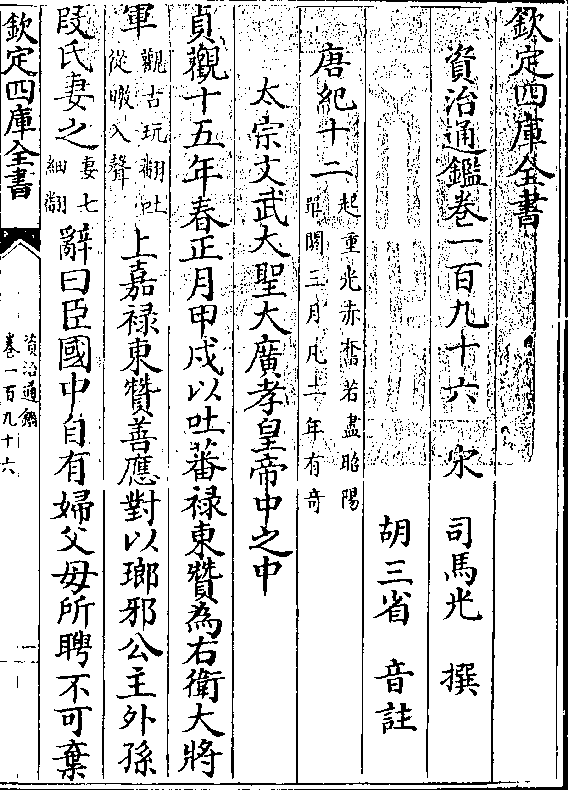 欽定四庫全書
資治通鑑卷一百九十六 宋 司馬光 撰
胡三省 音註
唐紀十二 起重光赤奮若盡昭陽單閼三月凡二年有奇
太宗文武大聖大廣孝皇帝中之中
貞觀十五年春正月甲戌以吐蕃禄東贊為右衛大將
軍 觀古玩翻吐從暾入聲 上嘉禄東贊善應對以瑯邪公主外孫
段氏妻之 妻七細翻 辭曰臣國中自有婦父母所聘不可棄
欽定四庫全書 資治通鑑 卷一百九十六 一